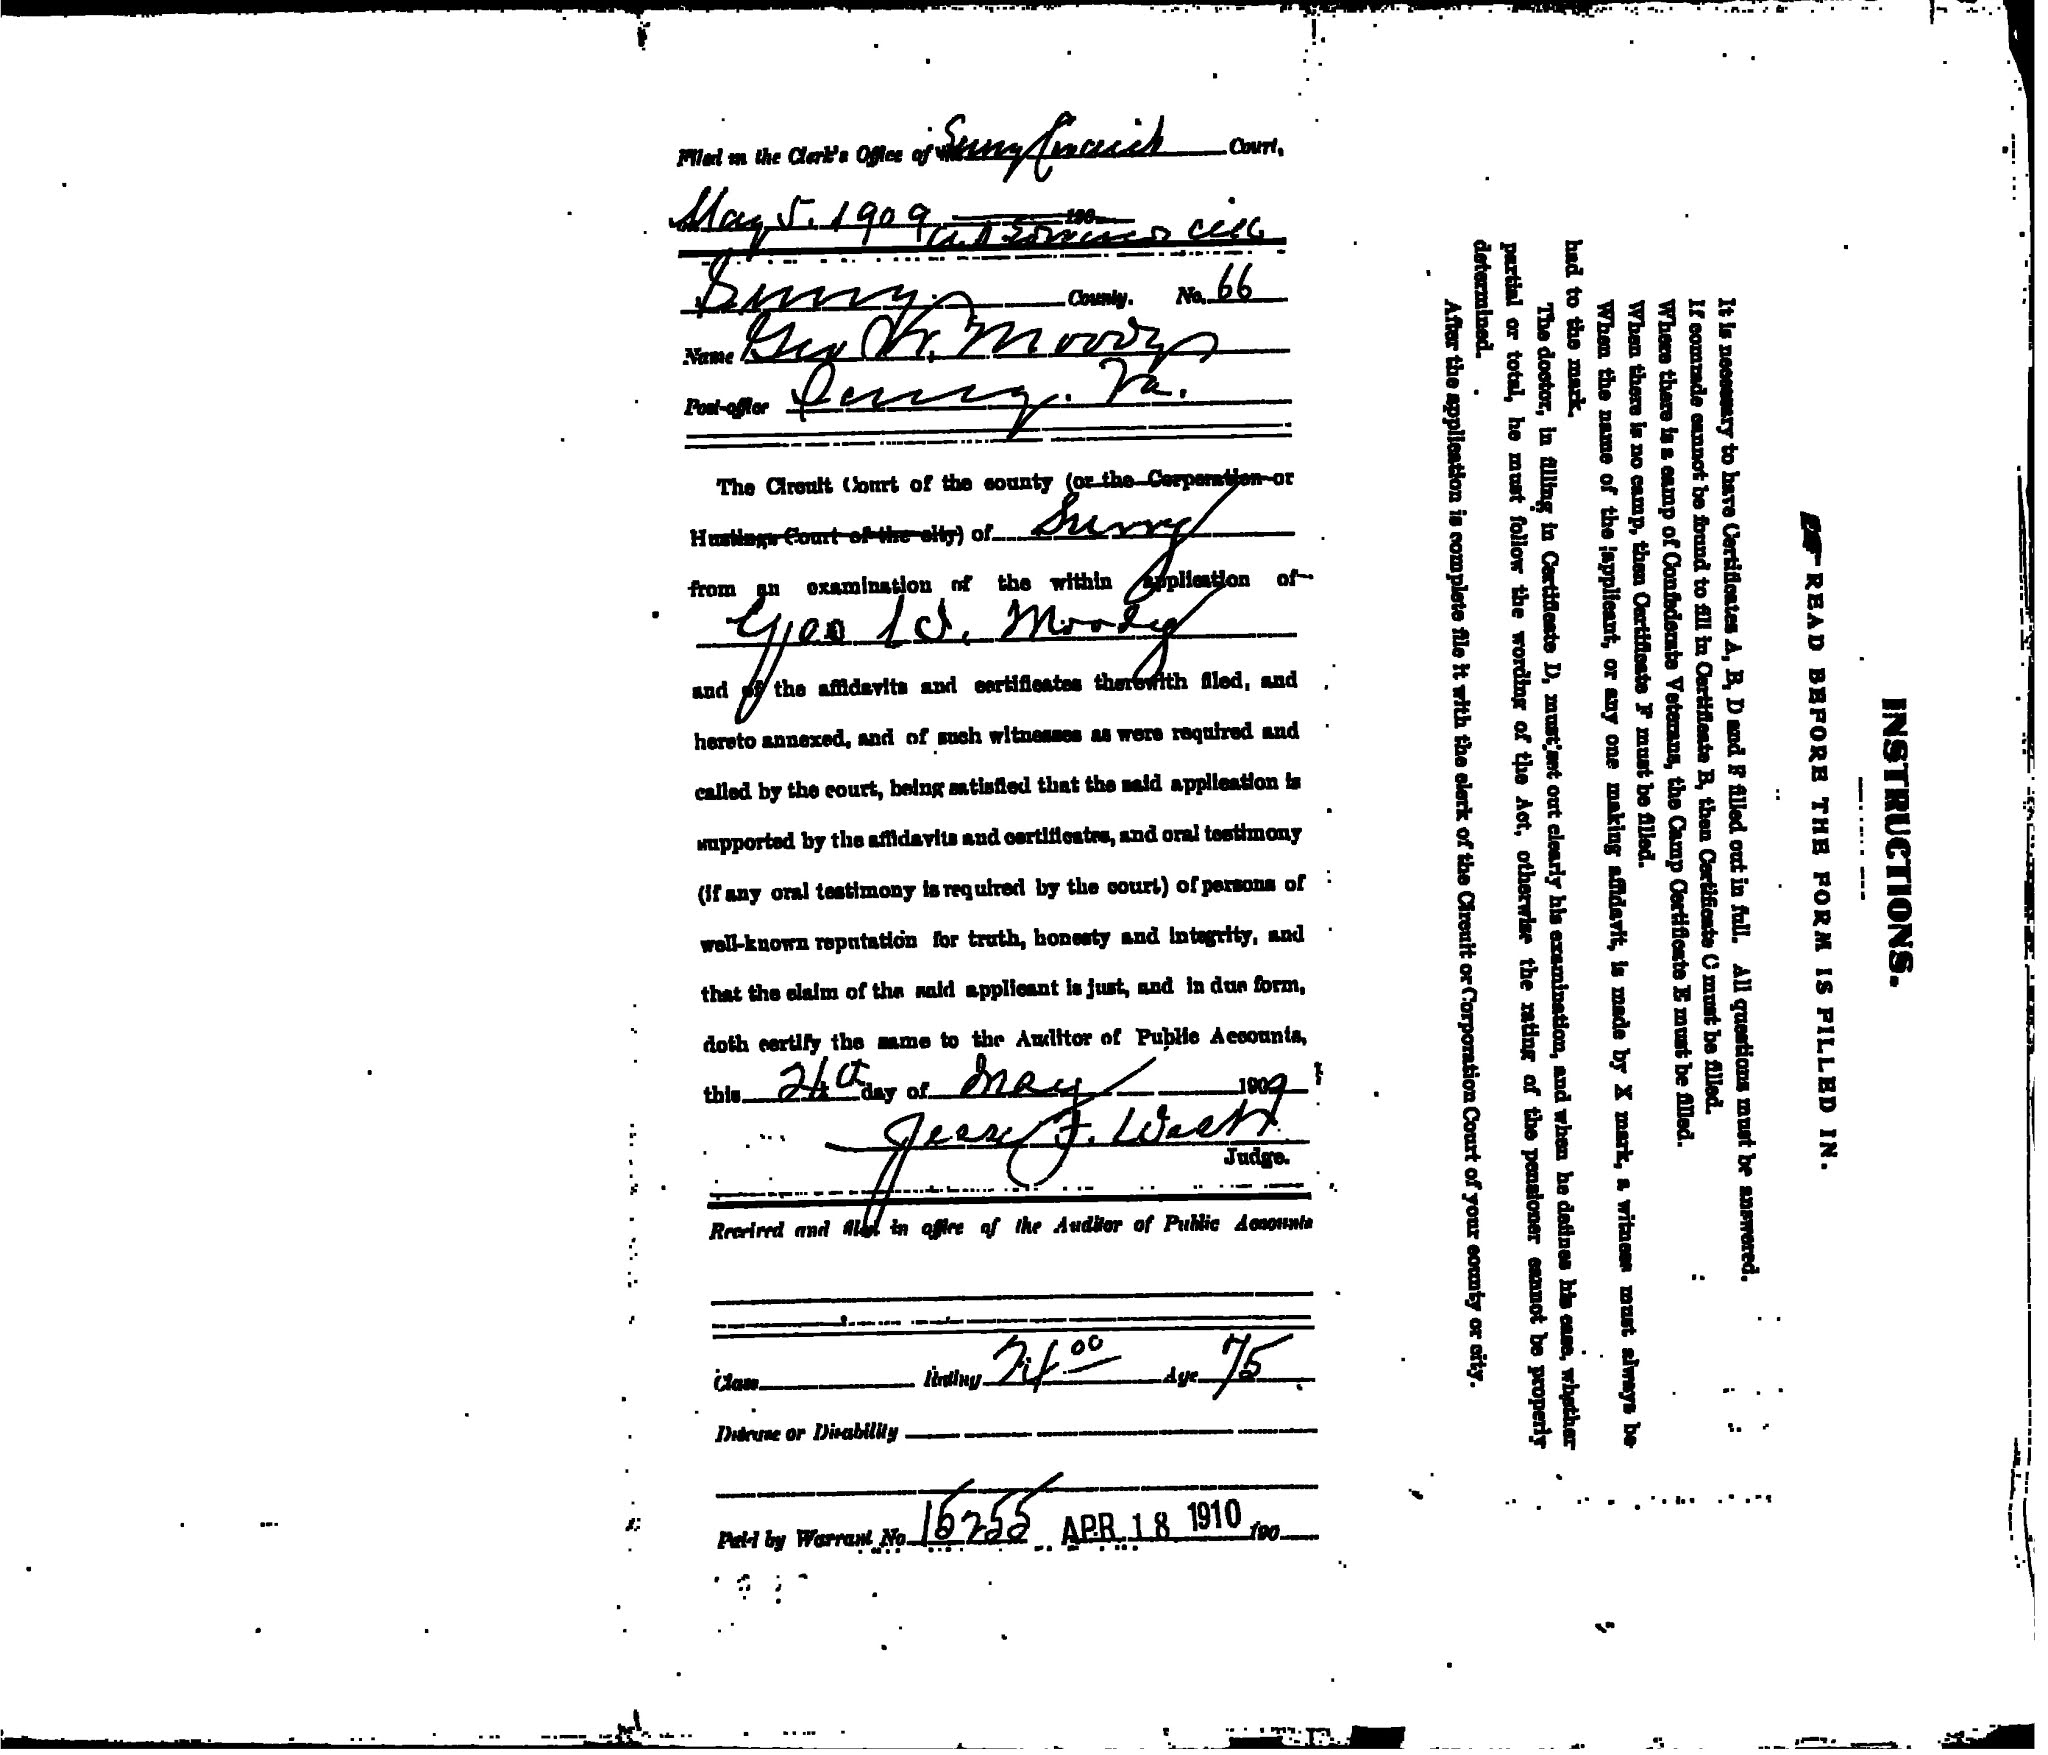 Filed in the Clerk's Office of the Surry Circuit Court,
on May 5. 1909 190
Surry County. No. 66
Name Geo W. Moody
Post-office Surry. Va.
The Circuit Court of the county (or the Corporation or
Hustings Court of the city) of Surry
from an examination of the within application of
Geo W. Moody
and of the affidavits and certificates therewith filed, and
hereto annexed, and of such witnesses as were required and
called by the court, being satisfied that the said application is
supported by the affidavits and certificates, and oral testimony
(if any oral testimony is required by the court) of persons of
well-known reputation for truth, honesty and integrity, and
that the claim of the said applicant is just, and in due form,
doth certify the same to the Auditor of Public Accounts,
this day of May 1909
Jesse F. West
Judge.
Received and filed in office of the Auditor of Public Accounts
Class Rating 24 00 Age 75
Disease or Disability
Paid by Warrant No 15255 APR 18 1910 190
INSTRUCTIONS.
READ BEFORE THE FORM IS FILLED IN.
It is necessary to have Certificates A, B, D and F filled out in full. All questions must be answered.
If comrade cannot be found to fill in Certificate B, then Certificate C must be filled.
Where there is a camp of Confederate Veterans, the Camp Certificate E must be filled.
When there is no camp, then Certificate F must be filled.
When the name of the applicant, or any one making affidavit, is made by X mark, a witness must always be
had to the mark.
The doctor, in filling in Certificate D, must set out clearly his examination, and when he defines his case, whether
partial or total, he must follow the wording of the Act, otherwise the rating of the pensioner cannot be properly
determined.
After the application is complete file it with the clerk of the Circuit or Corporation Court of your county or city.